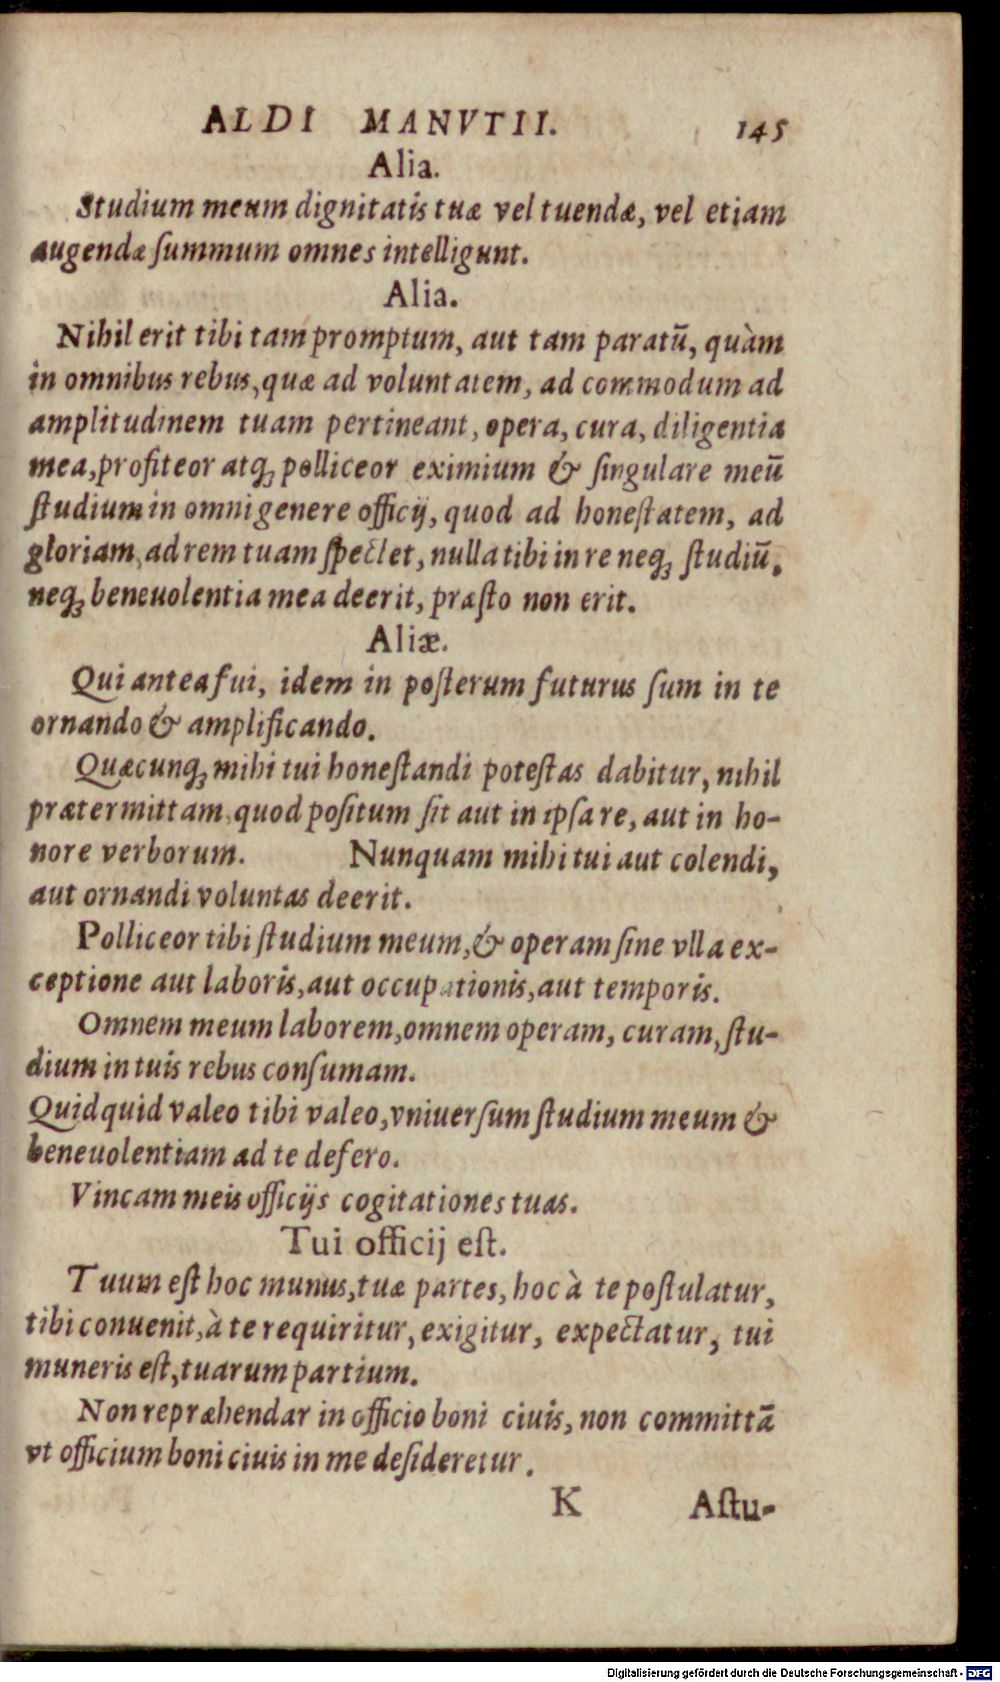 ALDI MANVTII. 145
Alia.
Studium meum dignitatis tuæ vel tuendæ, vel etiam
augendæ ſummum omnes intelligunt.
Alia.
Nihil erit tibi tam promptum, aut tam paratũ, quàm
in omnibus rebus, quæ ad voluntatem, ad commodum ad
amplitudinem tuam pertineant, opera, cura, diligentia
mea, profiteor atq́ꝫ polliceor eximium & ſingulare meũ
ſtudium in omni genere officij, quod ad honeſtatem, ad
gloriam, ad rem tuam ſpectet, nulla tibi in re neqꝫ ſtudiũ,
neqꝫ beneuolentia mea deerit, præſto non erit.
Aliæ.
Qui antea fui, idem in poſterum futurus ſum in te
ornando & amplificando.
Quæcunqꝫ mihi tui honeſtandi poteſtas dabitur, nihil
prætermittam, quod poſitum ſit aut in ipſa re, aut in ho-
nore verborum. Nunquam mihi tui aut colendi,
aut ornandi voluntas deerit.
Polliceor tibi ſtudium meum, & operam ſine vlla ex-
ceptione aut laboris, aut occupationis, aut temporis.
Omnem meum laborem, omnem operam, curam, ſtu-
dium in tuis rebus conſumam.
Quidquid valeo tibi valeo, vniuerſum ſtudium meum &
beneuolentiam ad te defero.
Vincam meis officijs cogitationes tuas.
Tui officij eſt.
Tuum eſt hoc munus, tuæ partes, hoc à te poſtulatur,
tibi conuenit, à te requiritur, exigitur, expectatur, tui
muneris eſt, tuarum partium.
Non repræhendar in officio boni ciuis, non committã
vt officium boni ciuis in me deſideretur.
K Aſtu-
Digitalisierung gefördert durch die Deutsche Forschungsgemeinschaft - DFG